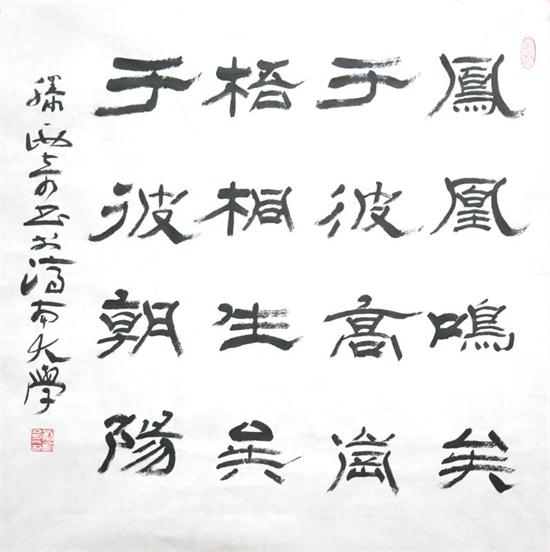 鳳凰鳴矣
于彼高崗
梧桐生矣
于彼朝陽
滕西奇书於濟南大學